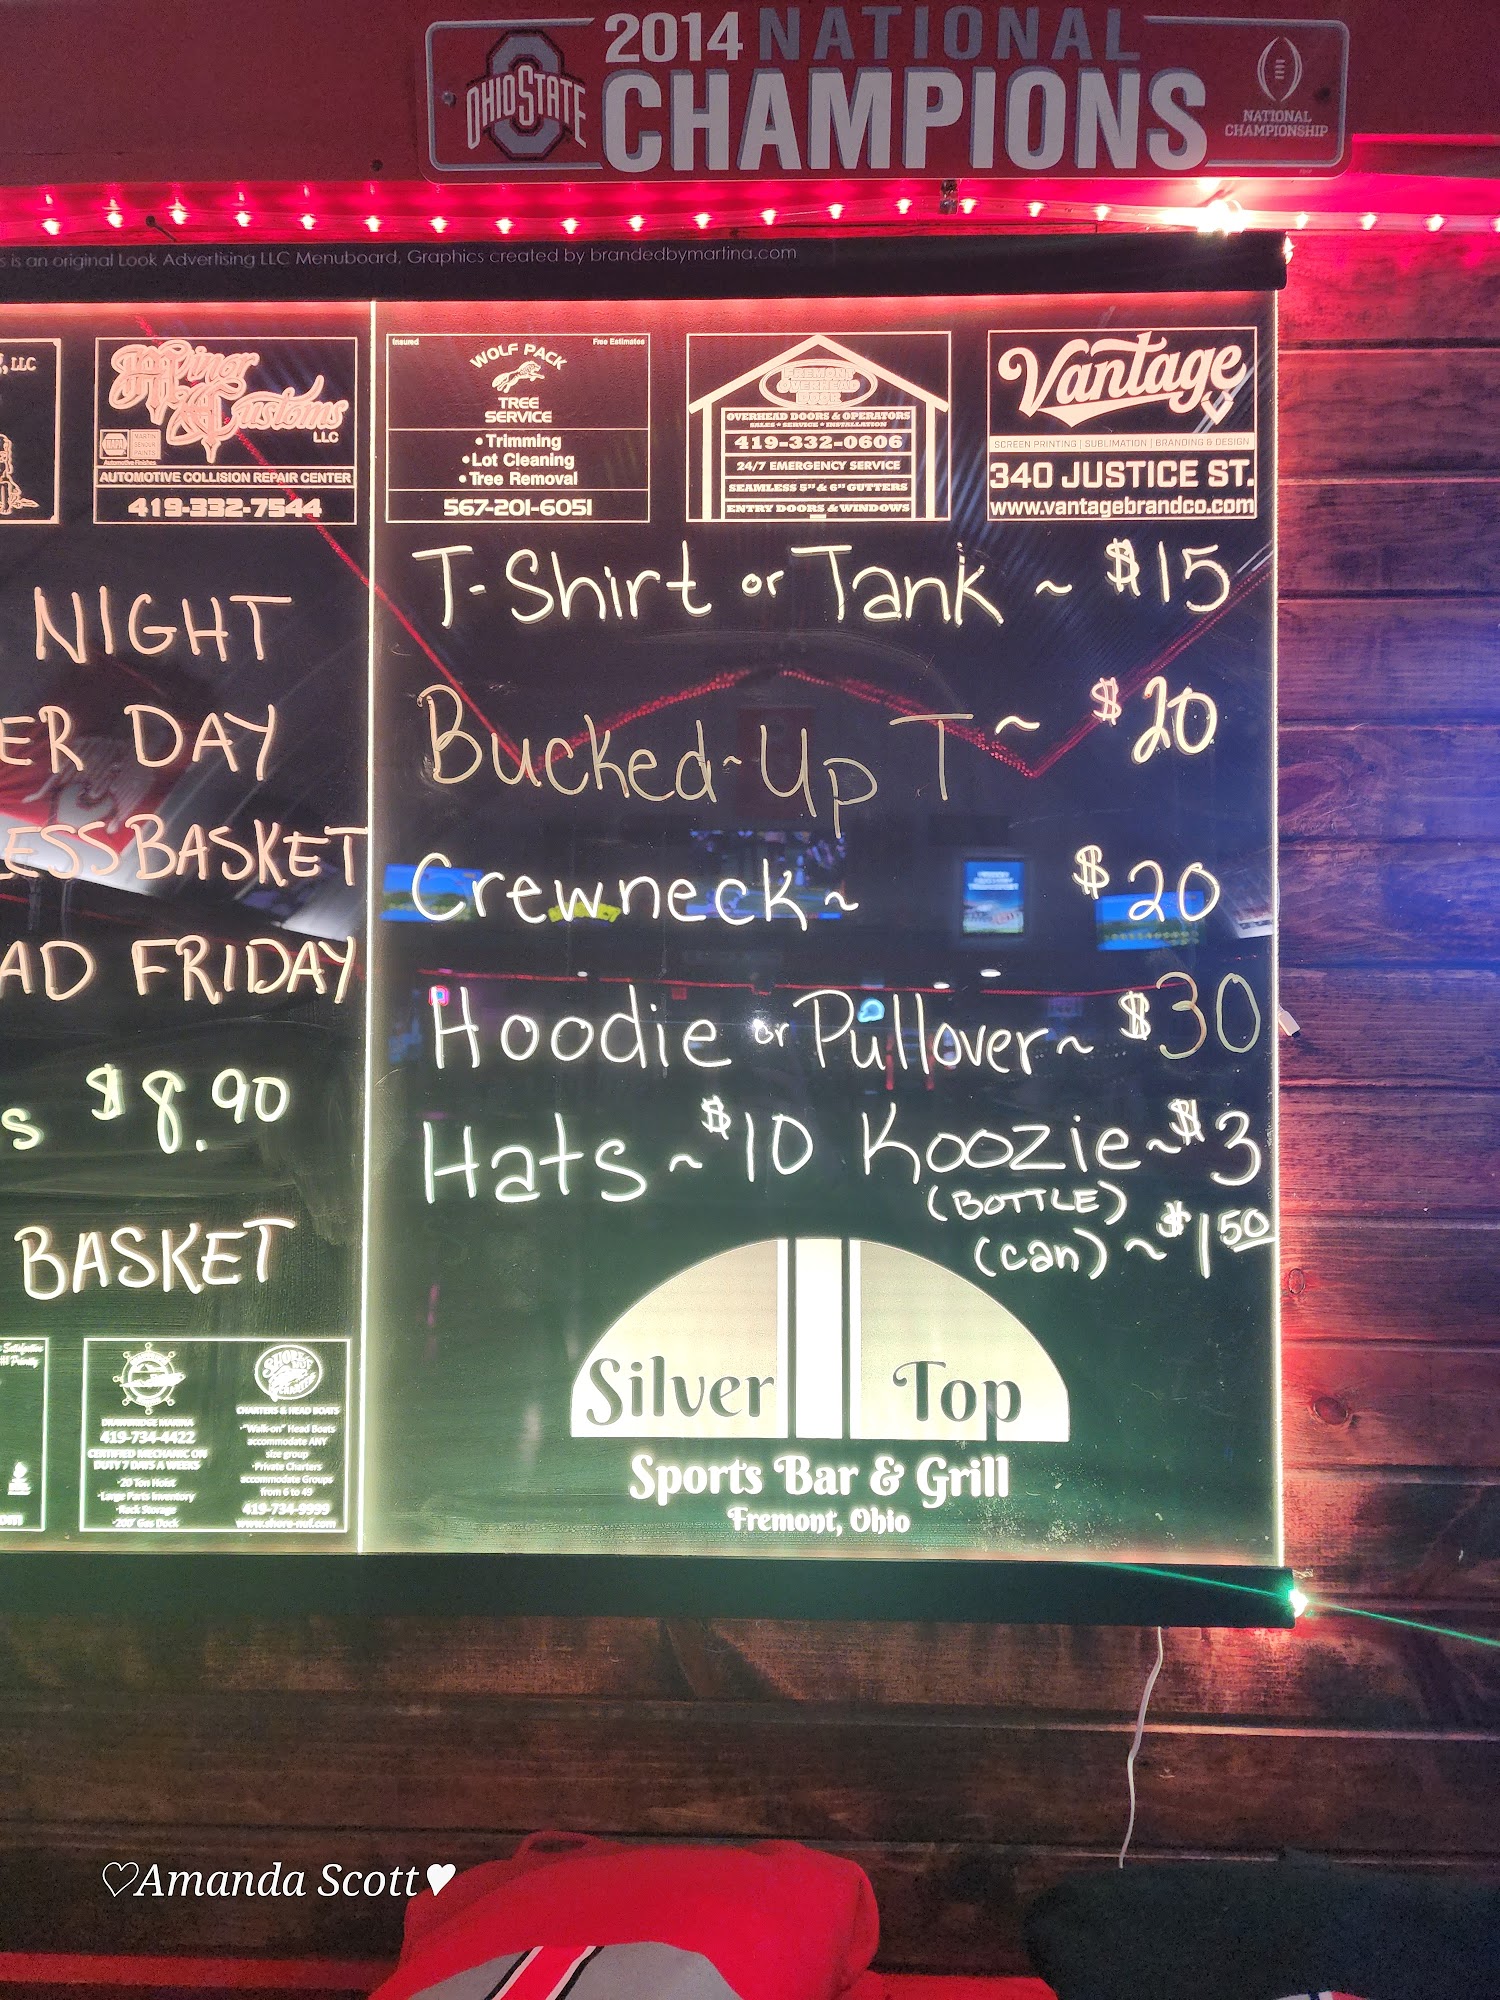 OHIO STATE
2014 NATIONAL
CHAMPIONS
NATIONAL
CHAMPIONSHIP
s is an original Look Advertising LLC Menuboard, Graphics created by brandedbymartina.com
, LLC
Customs
LLC
AUTOMOTIVE COLLISION REPAIR CENTER
419-332-7544
NIGHT
ER DAY
ESS BASKET
AD FRIDAY
s $8.90
BASKET
DRAWBRIDGE MARINA
419-734-4422
CERTIFIED MECHANIC ON
DUTY 7 DAYS A WEEKS
·20 Ton Hoist
·Large Parts Inventory
·Rack Storage
·200' Gas Dock
CHARTERS & HEAD BOATS
·"Walk-on" Head Boats
accommodate ANY
size group
·Private Charters
accommodate Groups
from 6 to 49
419-734-9999
www.shore-nuf.com
Insured
Free Estimates
WOLF PACK
TREE
SERVICE
•Trimming
•Lot Cleaning
•Tree Removal
567-201-6051
FREMONT
OVERHEAD
DOOR
OVERHEAD DOORS & OPERATORS
SALES • SERVICE • INSTALLATION
419-332-0606
24/7 EMERGENCY SERVICE
SEAMLESS 5" & 6" GUTTERS
ENTRY DOORS & WINDOWS
Vantage
SCREEN PRINTING | SUBLIMATION | BRANDING & DESIGN
340 JUSTICE ST.
www.vantagebrandco.com
T-Shirt or Tank ~ $15
Bucked~Up T ~ $20
Crewneck ~ $20
Hoodie or Pullover ~ $30
Hats ~ $10 Koozie ~ $3
(BOTTLE)
(can) ~ $1 50
Silver Top
Sports Bar & Grill
Fremont, Ohio
♡Amanda Scott♥